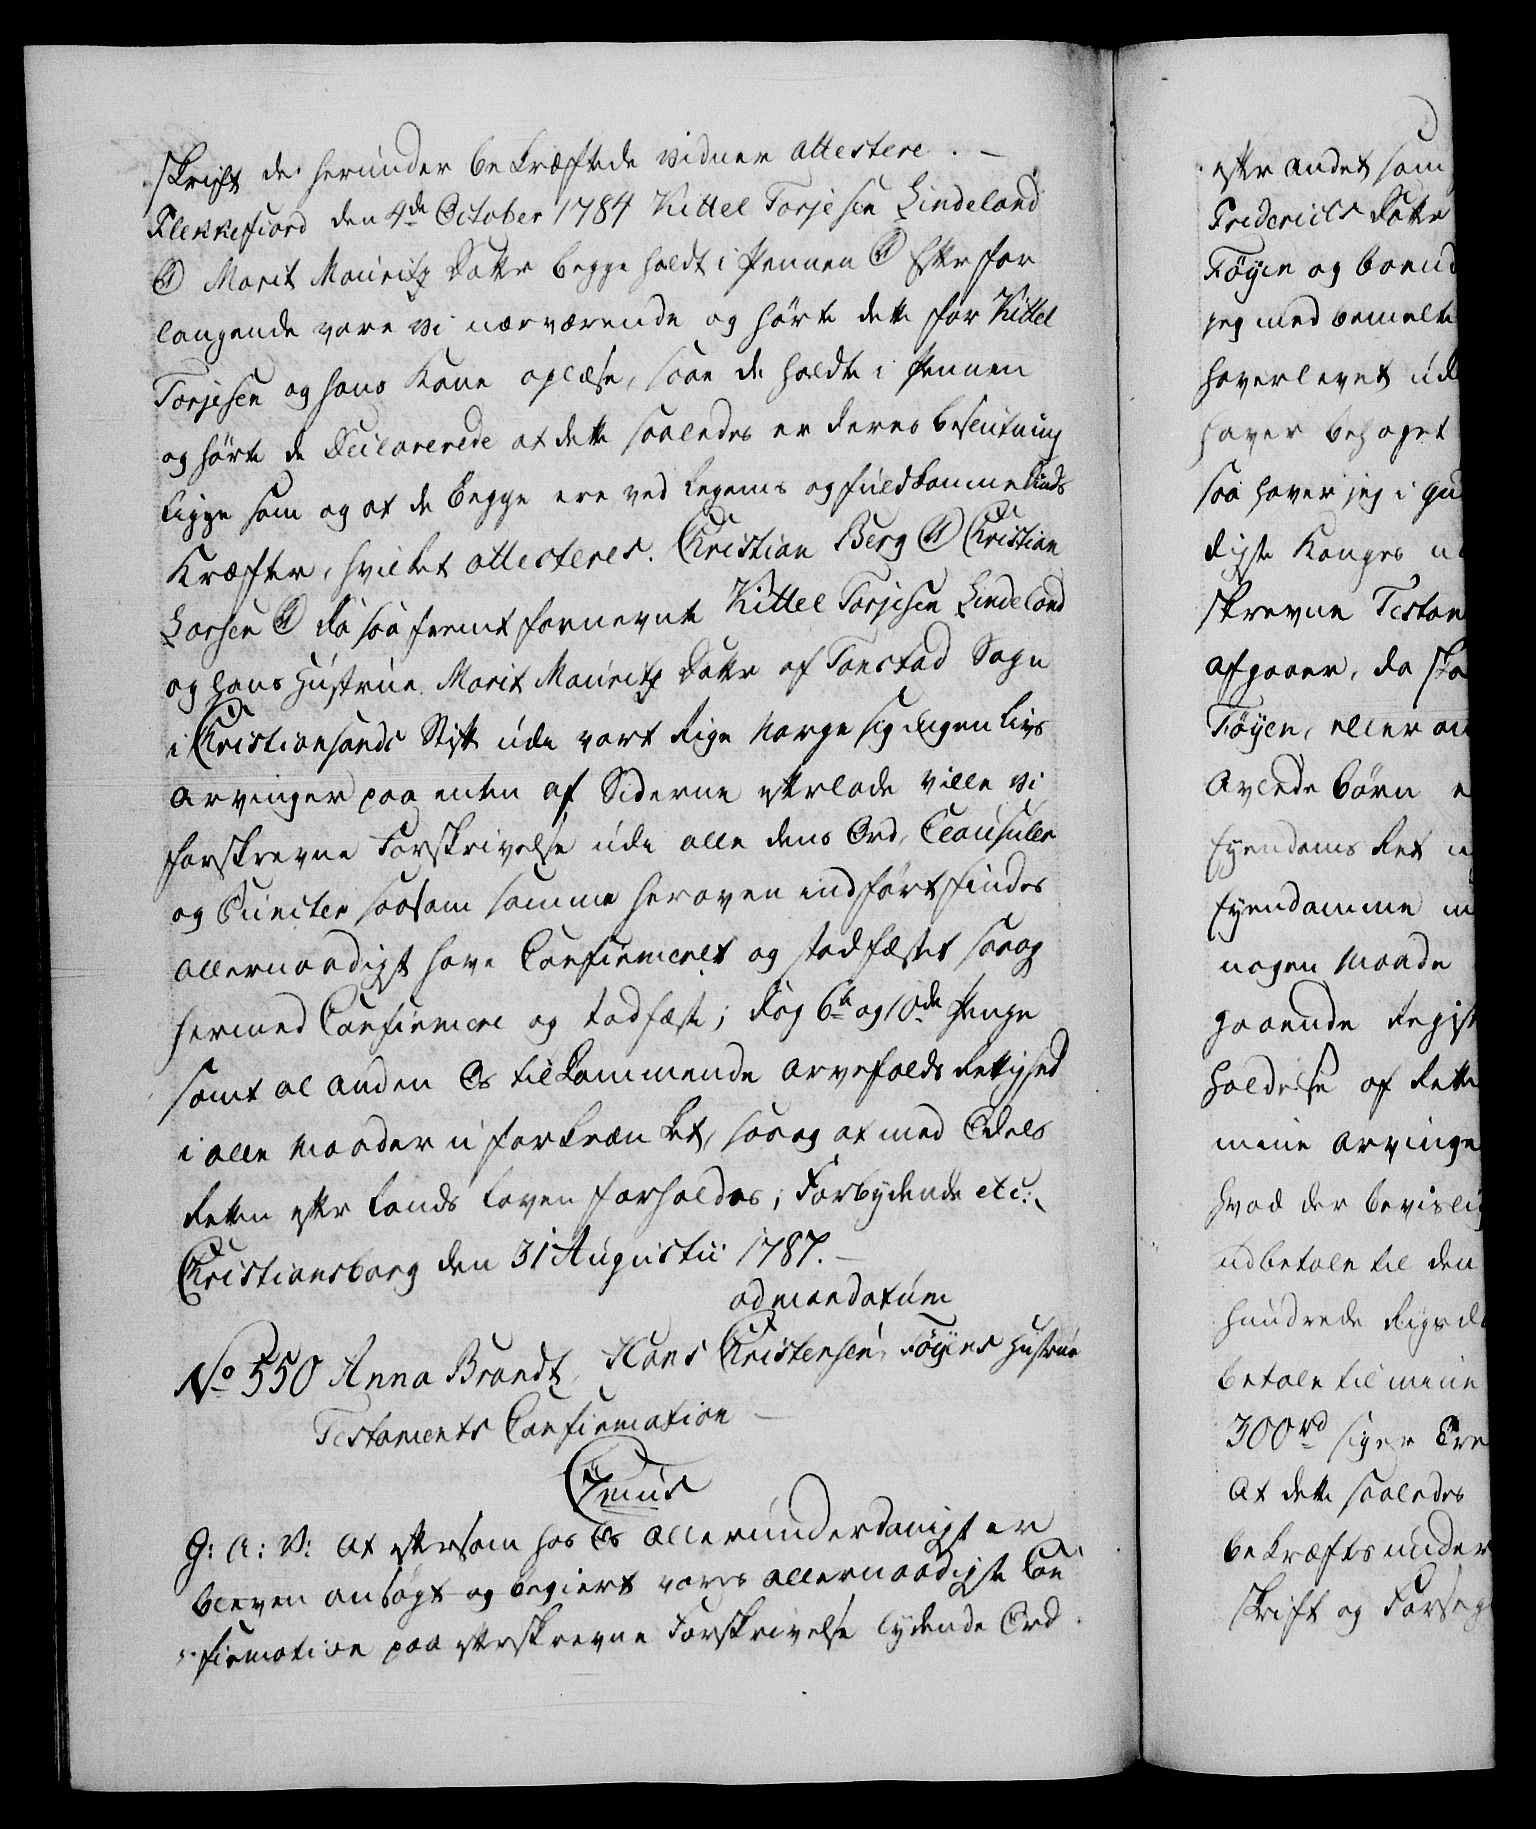 skrift de herunder bekræftede vidner attestere. –
Flekkefiord den 4de October 1784 Kittel Torjesen Lindeland
(LS) Marit Mauritz Datter begge holdt i Pennen (LS) Efter for
langende vare vi nærværende og hørte dette for Kittel
Torjesen og hans Kone oplæse, saae de holdte i Pennen
og hørte de Declarerede at dette saaledes er deres beslutning
ligge som og at de begge ere ved legems og fuldkomne Sinds
Kræfter, hvilket attesteres. Christian Berg (LS) Christian
Larsen (LS) Da saafremt fornevnte Kittel Torjesen Lindeland
og hans Hustrue Marit Mauritz Datter af Tonstad Sogn
i Christiansands Stift udi vort Rige Norge sig ingen livs
arvinger paa enten af Siderne efterlade ville vi
forskrevne Forskrivelse udi alle dens Ord, Clausuler
og Puncter saasom samme heroven indført findes
allernaadigst have Confirmeret og stadfæstet saa og
hermed Confirmere og stadfæste; Dog 6te og 10de Penge
samt al anden Os tilkommende arvefalds Rettighed
i alle Maader uforkrænket, saa og at med Odels
Retten efter Lands Loven forholdes; Forbydende etc:
Christiansborg den 31 Augustii 1787. –
ad mandatum
No 550 Anna Brandt, Hans Christensen Føyens Hustrue
Testaments Confirmation –
G: A: V: At eftersom hos Os allerunderdanigst er
bleven ansøgt og begiert vores allernaadigste Con
firmation paa efterskrevne Forskrivelse lydende Ord
efter andet som
Fredericks Datter
Føyen og boend
jeg med bemelte
haver levet ud
haver behaget
saa haver jeg i Gu
digste Konges
skrevne Testam
afgaaer, da ska
Føyen, eller
avlede børn
Eyendoms Ret
Eyendomme
nogen Maade
gaaende Regist
holdelse af Rette
mine arvinge
hvad der bevislig
udbetale til den
hundrede Rigsda
betale til mine
300rd siger Tre
At dette saaledes
bekræftes under
skrift og Forseg